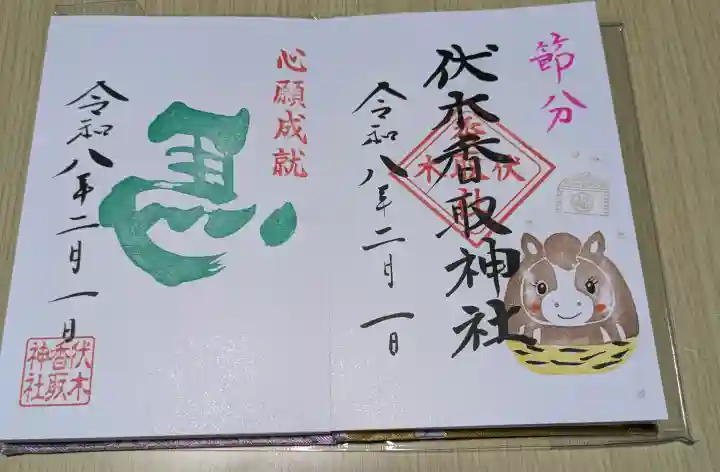 節分
伏木香取神社
令和八年二月一日
心願成就
令和八年二月一日
伏木
香取
神社